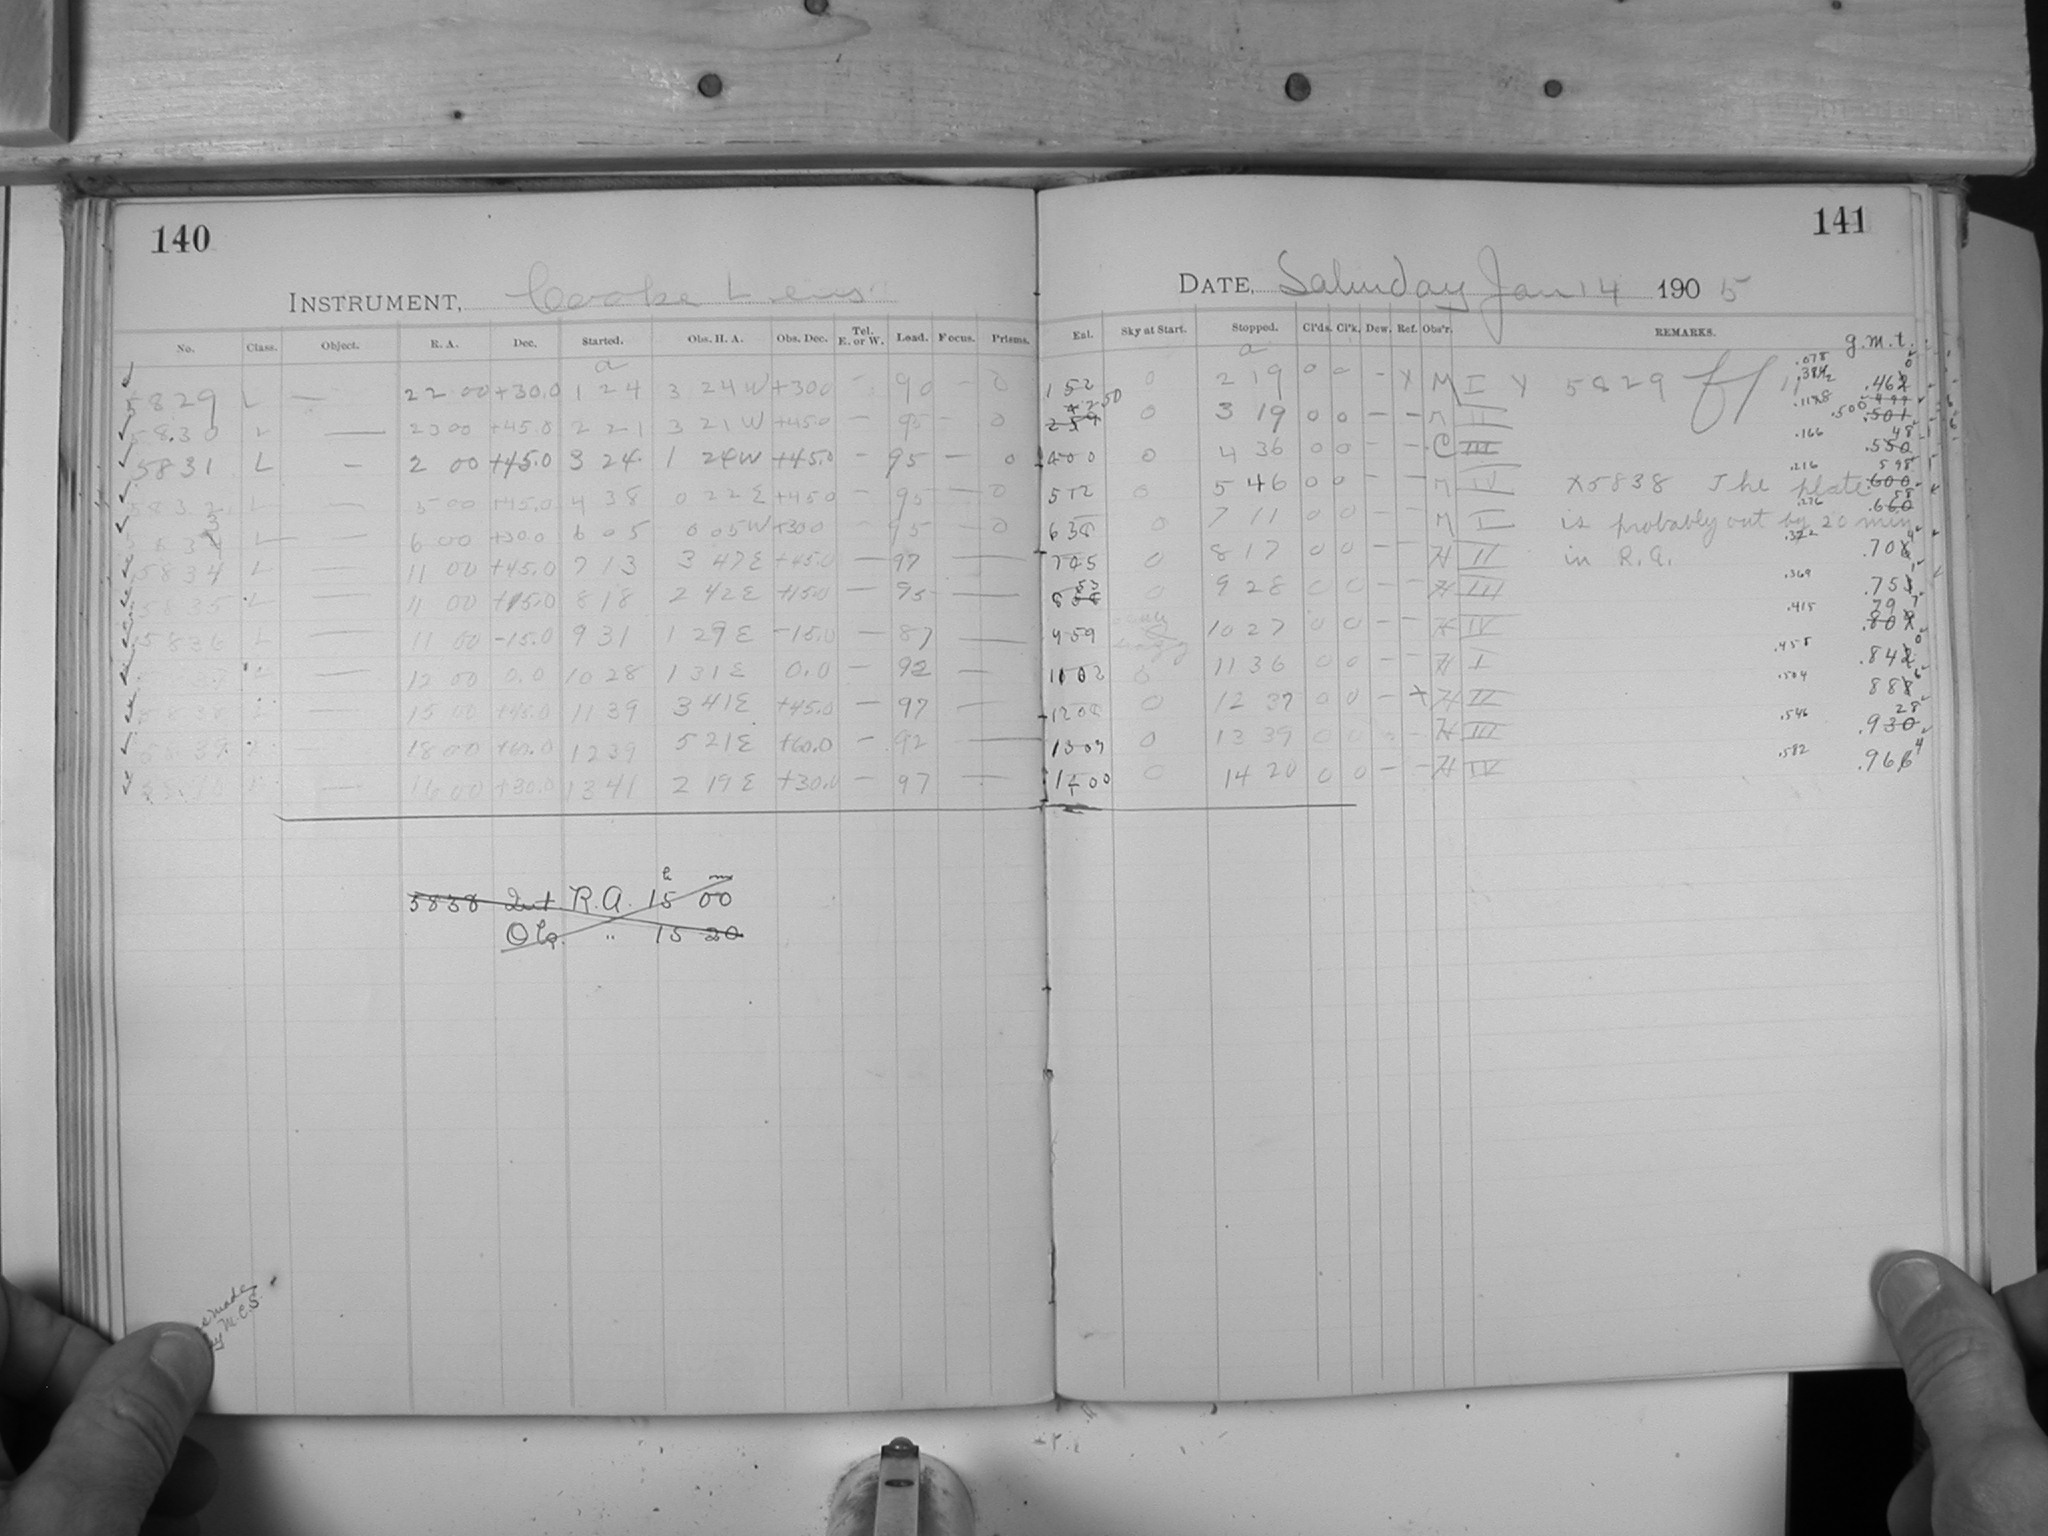 140
INSTRUMENT, Cooke Lens
No. Class. Object. R. A. Dec. Started. Obs. H. A. Obs. Dec. Tel. E. or W. Load. Focus. Prisms.
a
5829 L — 22 00 +30.0 1 24 3 24 W +30.0 - 90 - 0
5830 L — 23 00 +45.0 2 21 3 21 W +45.0 - 95 - 0
5831 L — 2 00 +45.0 3 24 1 24 W +45.0 - 95 - 0
5832 L — 5 00 +45.0 4 38 0 22 E +45.0 - 95 — 0
5833 L — 6 00 +30.0 6 05 0 05 W +30.0 - 95 - 0
5834 L — 11 00 +45.0 7 13 3 47 E +45.0 — 97 —
5835 L — 11 00 +15.0 8 18 2 42 E +15.0 — 95 —
5836 L — 11 00 -15.0 9 31 1 29 E -15.0 — 87 —
L — 12 00 0.0 10 28 1 31 E 0.0 — 92 —
5838 L — 15 00 +45.0 11 39 3 41 E +45.0 — 97 —
5839 L — 18 00 +60.0 12 39 5 21 E +60.0 — 92 —
L — 16 00 +30.0 13 41 2 19 E +30.0 — 97 —
5838 Int. R.A. 15h 00m
Obs. " 15 20
made
by M.C.S.
141
DATE, Saturday Jan 14 1905
Exl. Sky at Start. Stopped. Cl'ds. Cl'k. Dew. Ref. Obs'r. REMARKS.
g.m.t.
a
1 52 0 2 19 0 0 - X M I X 5829 .078
2 50 0 3 19 0 0 - - M II .500
4 00 0 4 36 0 0 - - C III .166 .550
5 12 0 5 46 0 0 - - M IV X5838 The plate .216 .600
6 38 0 7 11 0 0 - - M I is probably out by 20 min .276 .660
7 45 0 8 17 0 0 - - H II in R.A. .322 .708
8 53 0 9 28 0 0 - - H III .369 .753
9 59 10 27 0 0 - - H IV .415 .797
11 02 0 11 36 0 0 - - H I .458 .842
12 08 0 12 37 0 0 - X H II .504 .888
13 09 0 13 39 0 0 - - H III .546 .930
14 00 0 14 20 0 0 - - H IV .582 .966